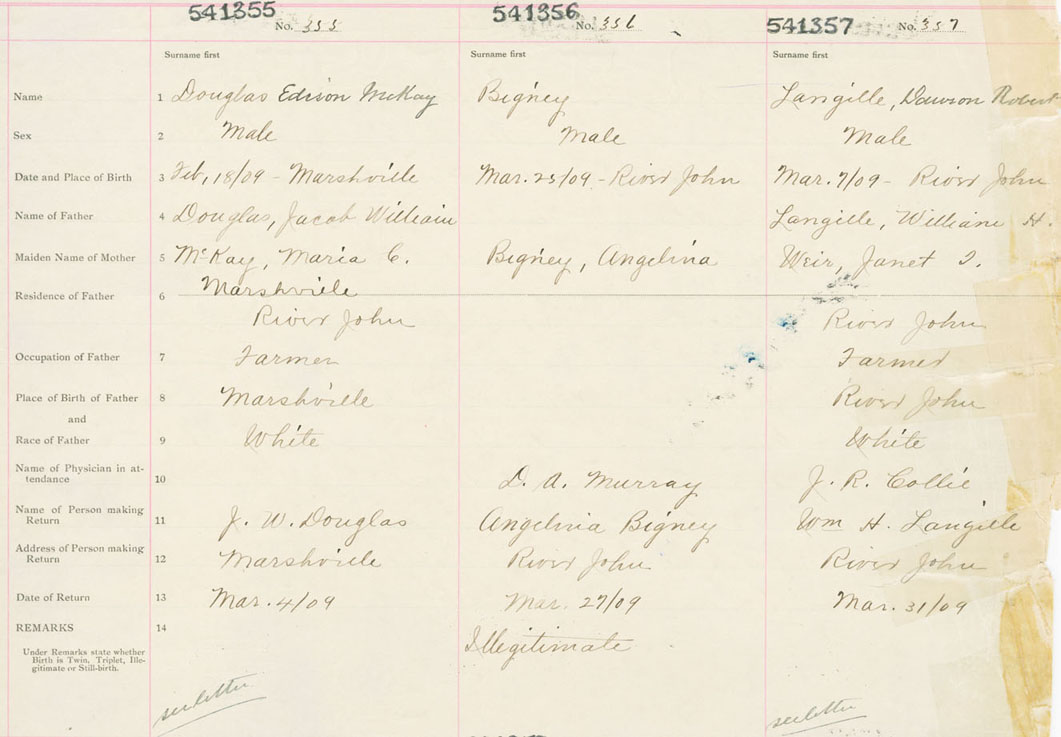 541355 541356 541357
No. 355 No. 356 No. 357
Surname first Surname first Surname first
Name 1 Douglas Edison McKay Bigney Langille, Dawson Robert
Sex 2 Male Male Male
Date and Place of Birth 3 Feb, 18/09 - Marshville Mar. 25/09 - River John Mar. 7/09 - River John
Name of Father 4 Douglas, Jacob William Langille, William H.
Maiden Name of Mother 5 McKay, Maria C. Bigney, Angelina Weir, Janet I.
Marshville
Residence of Father 6
River John River John
Occupation of Father 7 Farmer Farmer
Place of Birth of Father 8 Marshville River John
and
Race of Father 9 White White
Name of Physician in at-
tendance 10 D. A. Murray J. R. Collie
Name of Person making
Return 11 J. W. Douglas Angelina Bigney Wm H. Langille
Address of Person making
Return 12 Marshville River John River John
Date of Return 13 Mar. 4/09 Mar. 27/09 Mar. 31/09
REMARKS 14
Illegitimate
Under Remarks state whether
Birth is Twin, Triplet, Ille-
gitimate or Still-birth.
see letter see letter